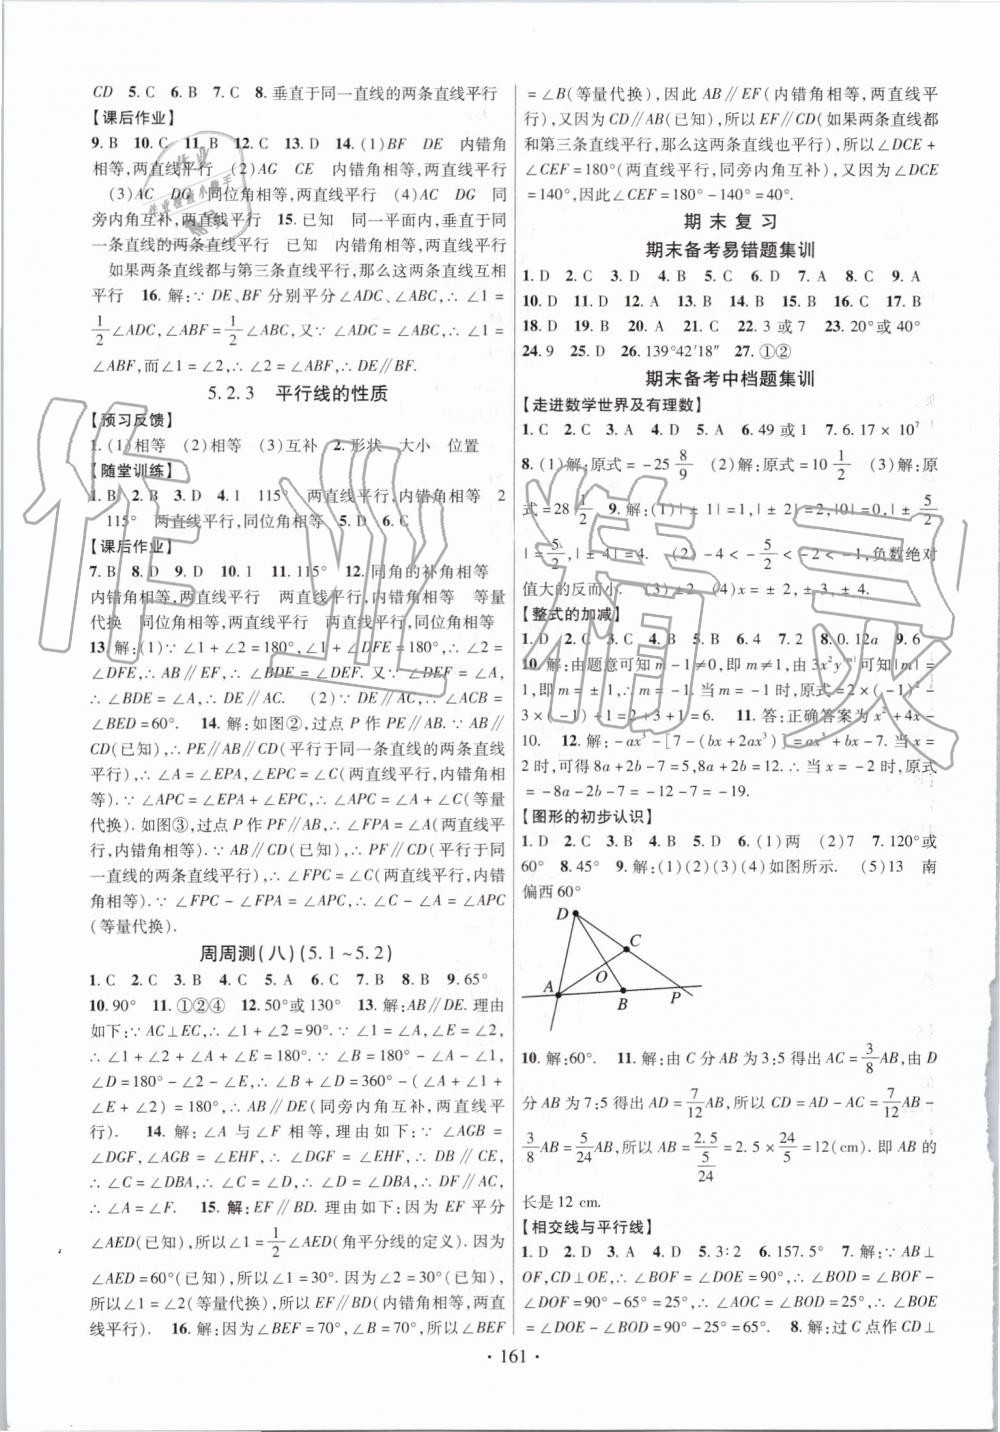 CD 5. C 6. B 7. C 8. 垂直于同一直线的两条直线平行
【课后作业】
9. B 10. C 11. B 12. C 13. D 14. (1)BF DE 内错角
相等,两直线平行 (2)AG CE 内错角相等,两直线平行
(3)AC DG 同位角相等,两直线平行 (4)AC DG 同
旁内角互补,两直线平行 15. 已知 同一平面内,垂直于同
一条直线的两条直线平行 已知 内错角相等,两直线平行
如果两条直线都与第三条直线平行,那么这两条直线互相
平行 16. 解:∵DE、BF 分别平分∠ADC、∠ABC,∴∠1=
1/2∠ADC,∠ABF=1/2∠ABC,又∵∠ADC=∠ABC,∴∠1=
∠ABF,而∠1=∠2,∴∠2=∠ABF,∴DE∥BF.
5.2.3 平行线的性质
【预习反馈】
1. (1)相等 (2)相等 (3)互补 2. 形状 大小 位置
【随堂训练】
1. B 2. B 3. D 4. 1 115° 两直线平行,内错角相等 2
115° 两直线平行,同位角相等 5. D 6. C
【课后作业】
7. B 8. D 9. D 10. 1 11. 115° 12. 同角的补角相等
内错角相等,两直线平行 两直线平行,内错角相等 等量
代换 同位角相等,两直线平行 两直线平行,同位角相等
13. 解:(1)∵∠1+∠2=180°,∠1+∠DFE=180°,∴∠2=
∠DFE,∴AB∥EF,∴∠BDE=∠DEF. 又∵∠DEF=∠A,
∴∠BDE=∠A,∴DE∥AC. (2)∵DE∥AC,∴∠ACB=
∠BED=60°. 14. 解:如图②,过点 P 作 PE∥AB. ∵AB∥
CD(已知),∴PE∥AB∥CD(平行于同一条直线的两条直线
平行),∴∠A=∠EPA,∠EPC=∠C(两直线平行,内错角相
等).∵∠APC=∠EPA+∠EPC,∴∠APC=∠A+∠C(等量
代换). 如图③,过点 P 作 PF∥AB,∴∠FPA=∠A(两直线平
行,内错角相等).∵AB∥CD(已知),∴PF∥CD(平行于同
一直线的两条直线平行),∴∠FPC=∠C(两直线平行,内错
角相等).∵∠FPC-∠FPA=∠APC,∴∠C-∠A=∠APC
(等量代换).
周周测(八)(5.1~5.2)
1. C 2. C 3. B 4. C 5. A 6. C 7. B 8. B 9. 65°
10. 90° 11. ①②④ 12. 50°或130° 13. 解:AB∥DE. 理由
如下:∵AC⊥EC,∴∠1+∠2=90°.∵∠1=∠A,∠E=∠2,
∴∠1+∠2+∠A+∠E=180°.∵∠B=180°-∠1-∠A,
∠D=180°-∠2-∠E,∴∠B+∠D=360°-(∠A+∠1+
∠E+∠2)=180°,∴AB∥DE(同旁内角互补,两直线平
行). 14. 解:∠A 与∠F 相等,理由如下:∵∠AGB=
∠DGF,∠AGB=∠EHF,∴∠DGF=∠EHF,∴DB∥CE,
∴∠C=∠DBA,∵∠C=∠D,∴∠D=∠DBA,∴DF∥AC,
∴∠A=∠F. 15. 解:EF∥BD. 理由如下:因为 EF 平分
∠AED(已知),所以∠1=1/2∠AED(角平分线的定义). 因为
∠AED=60°(已知),所以∠1=30°. 因为∠2=30°(已知),
所以∠1=∠2(等量代换),所以 EF∥BD(内错角相等,两直
线平行). 16. 解:因为∠BEF=70°,∠B=70°,所以∠BEF
=∠B(等量代换),因此 AB∥EF(内错角相等,两直线平
行),又因为 CD∥AB(已知),所以 EF∥CD(如果两条直线都
和第三条直线平行,那么这两条直线也平行),所以∠DCE+
∠CEF=180°(两直线平行,同旁内角互补),又因为∠DCE
=140°,因此∠CEF=180°-140°=40°.
期末复习
期末备考易错题集训
1. D 2. C 3. D 4. B 5. C 6. D 7. A 8. C 9. A
10. D 11. D 12. D 13. D 14. D 15. B 16. C 17. B
18. D 19. D 20. A 21. C 22. 3 或 7 23. 20°或40°
24. 9 25. D 26. 139°42′18″ 27. ①②
期末备考中档题集训
【走进数学世界及有理数】
1. C 2. C 3. A 4. D 5. D 6. 49 或 1 7. 6.17×10⁷
8. (1)解:原式=-25 8/9 (2)解:原式=10 1/2 (3)解:原
式=28 1/2 9. 解:(1)|±1|=1,|±2|=2,|0|=0,|±5/2
|=5/2,|±4|=4. (2)-4<-5/2<-2<-1,负数绝对
值大的反而小. (3)±2 (4)x=±2,±4.
【整式的加减】
1. D 2. C 3. C 4. A 5. D 6. 4 7. 2 8. 0.12a 9. 6
10. 解:由题意可知 m-1≠0,即 m≠1,由 3x²y|m|可知|m|=
1,即 m=±1,∴m=-1. 当 m=-1 时,原式=2×(-1)²-
3×(-1)+1=2+3+1=6. 11. 答:正确答案为 x²+4x-
10. 12. 解:-ax³-[7-(bx+2ax³)]=ax³+bx-7. 当 x=
2 时,可得 8a+2b-7=5,8a+2b=12.∴当 x=-2 时,原式
=-8a-2b-7=-12-7=-19.
【图形的初步认识】
1. D 2. C 3. B 4. B 5. D 6. (1)两 (2)7 7. 120°或
60° 8. 45° 9. 解:(1)(2)(3)(4)如图所示. (5)13 南
偏西 60°
D
C
O
A
B
P
10. 解:60°. 11. 解:由 C 分 AB 为 3∶5 得出 AC=3/8AB,由 D
分 AB 为 7∶5 得出 AD=7/12AB,所以 CD=AD-AC=7/12AB-
3/8AB=5/24AB,所以 AB=2.5/(5/24)=2.5×24/5=12(cm). 即 AB 的
长是 12 cm.
【相交线与平行线】
1. D 2. D 3. A 4. D 5. 3∶2 6. 157.5° 7. 解:∵AB⊥
OF,CD⊥OE,∴∠BOF=∠DOE=90°,∴∠BOD=∠BOF-
∠DOF=90°-65°=25°,∴∠AOC=∠BOD=25°,∴∠BOE
=∠DOE-∠BOD=90°-25°=65°. 8. 解:过 C 点作 CD⊥
·161·
作业精灵